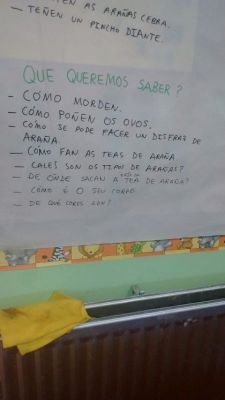 AS ARAÑAS CEBRA.
— TEÑEN UN PINCHO DIANTE.
QUE QUEREMOS SABER?
— CÓMO MORDEN.
— CÓMO POÑEN OS OVOS.
— CÓMO SE PODE FACER UN DISFRAZ DE
ARAÑA.
— CÓMO FAN AS TEAS DE ARAÑA
— CALES SON OS TIPOS DE ARAÑAS?
— DE ÓNDE SACAN A TEA DE ARAÑA?
— CÓMO É O SEU CORPO.
— DE QUÉ CORES SON?